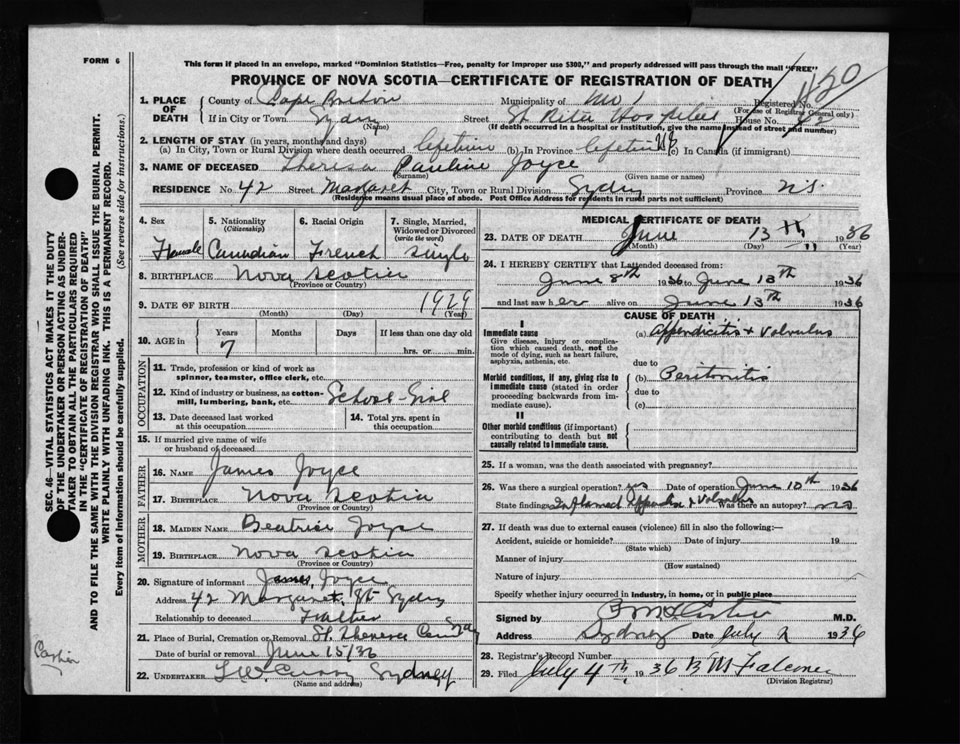 FORM 6
This form if placed in an envelope, marked "Dominion Statistics—Free, penalty for improper use $300," and properly addressed will pass through the mail "FREE"
PROVINCE OF NOVA SCOTIA—CERTIFICATE OF REGISTRATION OF DEATH
1. PLACE OF DEATH
County of Cape Breton Municipality of No 1 Registered No.
(For use of Registrar General only)
If in City or Town Sydney Street St Rita Hospital House No.
(Name) (If death occurred in a hospital or institution, give the name instead of street and number)
2. LENGTH OF STAY (in years, months and days)
(a) In City, Town or Rural Division where death occurred lifetime (b) In Province lifetime (c) In Canada (if immigrant)
3. NAME OF DECEASED Theresa Pauline Joyce
(Surname) (Given name or names)
RESIDENCE No. 42 Street Margaret City, Town or Rural Division Sydney Province N.S.
(Residence means usual place of abode. Post Office Address for residents in rural parts not sufficient)
4. Sex
Female
5. Nationality
(Citizenship)
Canadian
6. Racial Origin
French
7. Single, Married, Widowed or Divorced
(write the word)
Single
8. BIRTHPLACE Nova Scotia
(Province or Country)
9. DATE OF BIRTH 1929
(Month) (Day) (Year)
10. AGE in Years Months Days If less than one day old
7 hrs. or min.
OCCUPATION
11. Trade, profession or kind of work as
spinner, teamster, office clerk, etc.
12. Kind of industry or business, as cotton-
mill, lumbering, bank, etc. School-Girl
13. Date deceased last worked
at this occupation
14. Total yrs. spent in
this occupation
15. If married give name of wife
or husband of deceased
FATHER
16. NAME James Joyce
17. BIRTHPLACE Nova Scotia
(Province or Country)
MOTHER
18. MAIDEN NAME Beatrice Joyce
19. BIRTHPLACE Nova Scotia
(Province or Country)
20. Signature of informant James Joyce
Address 42 Margaret St Sydney
Relationship to deceased Father
21. Place of Burial, Cremation or Removal St. Theresa
Date of burial or removal June 15/36
22. UNDERTAKER Sydney
(Name and address)
MEDICAL CERTIFICATE OF DEATH
23. DATE OF DEATH June 13th 1936
(Month) (Day) (Year)
24. I HEREBY CERTIFY that I attended deceased from:
June 8th 1936 to June 13th 1936
and last saw her alive on June 13th 1936
CAUSE OF DEATH
I
Immediate cause
Give disease, injury or complica-
tion which caused death, not the
mode of dying, such as heart failure,
asphyxia, asthenia, etc.
(a) Appendicitis + Volvulus
due to
Morbid conditions, if any, giving rise to
immediate cause (stated in order
proceeding backwards from im-
mediate cause).
(b) Peritonitis
due to
(c)
II
Other morbid conditions (if important)
contributing to death but not
causally related to immediate cause.
25. If a woman, was the death associated with pregnancy?
26. Was there a surgical operation? yes Date of operation June 10th 1936
State findings Inflamed Appendix + Volvulus Was there an autopsy? no
27. If death was due to external causes (violence) fill in also the following:—
Accident, suicide or homicide? Date of injury 19
(State which)
Manner of injury
(How sustained)
Nature of injury
Specify whether injury occurred in industry, in home, or in public place
Signed by M.D.
Address Sydney Date July 2 1936
28. Registrar's Record Number
29. Filed July 4th 1936 B M Falconer
(Division Registrar)
SEC. 46—VITAL STATISTICS ACT MAKES IT THE DUTY
OF THE UNDERTAKER OR PERSON ACTING AS UNDER-
TAKER TO OBTAIN ALL THE PARTICULARS REQUIRED
IN THE "CERTIFICATE OF REGISTRATION OF DEATH"
AND TO FILE THE SAME WITH THE DIVISION REGISTRAR WHO SHALL ISSUE THE BURIAL PERMIT.
WRITE PLAINLY WITH UNFADING INK. THIS IS A PERMANENT RECORD.
Every item of information should be carefully supplied. (See reverse side for instructions.)